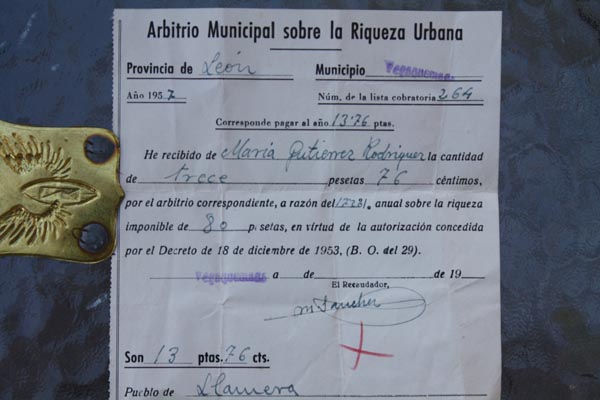 Arbitrio Municipal sobre la Riqueza Urbana
Provincia de León Municipio Vegaquemada
Año 1957 Núm. de la lista cobratoria 264
Corresponde pagar al año 13'76 ptas.
He recibido de María Gutiérrez Rodríguez la cantidad
de trece pesetas 76 céntimos,
por el arbitrio correspondiente, a razón del anual sobre la riqueza
imponible de 80 p.setas, en virtud de la autorización concedida
por el Decreto de 18 de diciembre de 1953, (B. O. del 29).
Vegaquemada a de de 19
El Recaudador,
Son 13 ptas. 76 cts.
Pueblo de Llamera